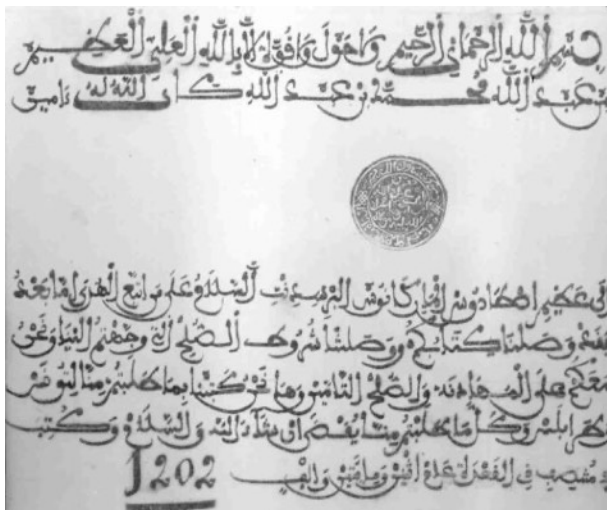 بسم الله الرحمان الرحيم ولا حول ولا قوة الا بالله العلي العظيم
من عبد الله محمد بن عبد الله كان الله له ءامين
عظيم المريكانوس البرسدنت السلام على من اتبع الهدى اما بعد
فقد وصلنا كتابكم ووصلتنا شروط الصلح التي وجهتم الينا ونحن
معكم على المهادنة والصلح التامين وها نحن كتبنا بما طلبتم منا لتونس
وطرابلس وكل ما طلبتم منا يقضى ان شاء الله والسلام وكتب
في القعدة عام اثنين ومائتين والف 1202